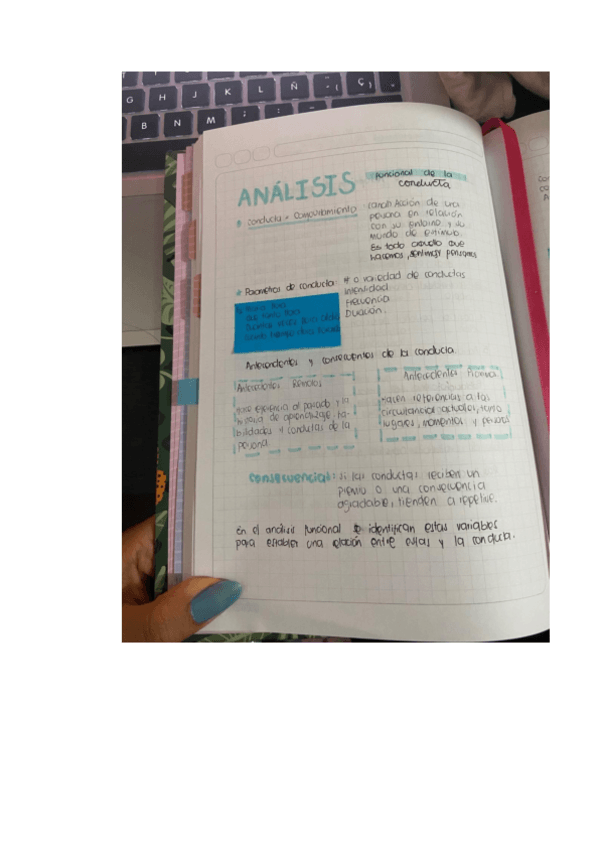 G H J K L Ñ Ç
B N M
ANÁLISIS funcional de la
conducta
conducta = Comportamiento
persona en relación
con su entorno y su
mundo de estímulo.
Es todo aquello que
hacemos, sentimos y pensamos
* Parámetros de conducta: # o variedad de conductas
Intensidad.
Frecuencia
Duración.
Antecedentes y consecuentes de la conducta
Antecedentes Remotos
hace referencia al pasado y la
historia de aprendizaje, ha-
bilidades y conductas de la
persona.
Antecedentes
Hacen referencias a las
circunstancias actuales, como
lugares, momentos y
Consecuencias: si las conductas reciben un
premio o una consecuencia
agradable, tienden a repetirse.
En el análisis funcional se identifican estas variables
para establer una relación entre ellas y la conducta.